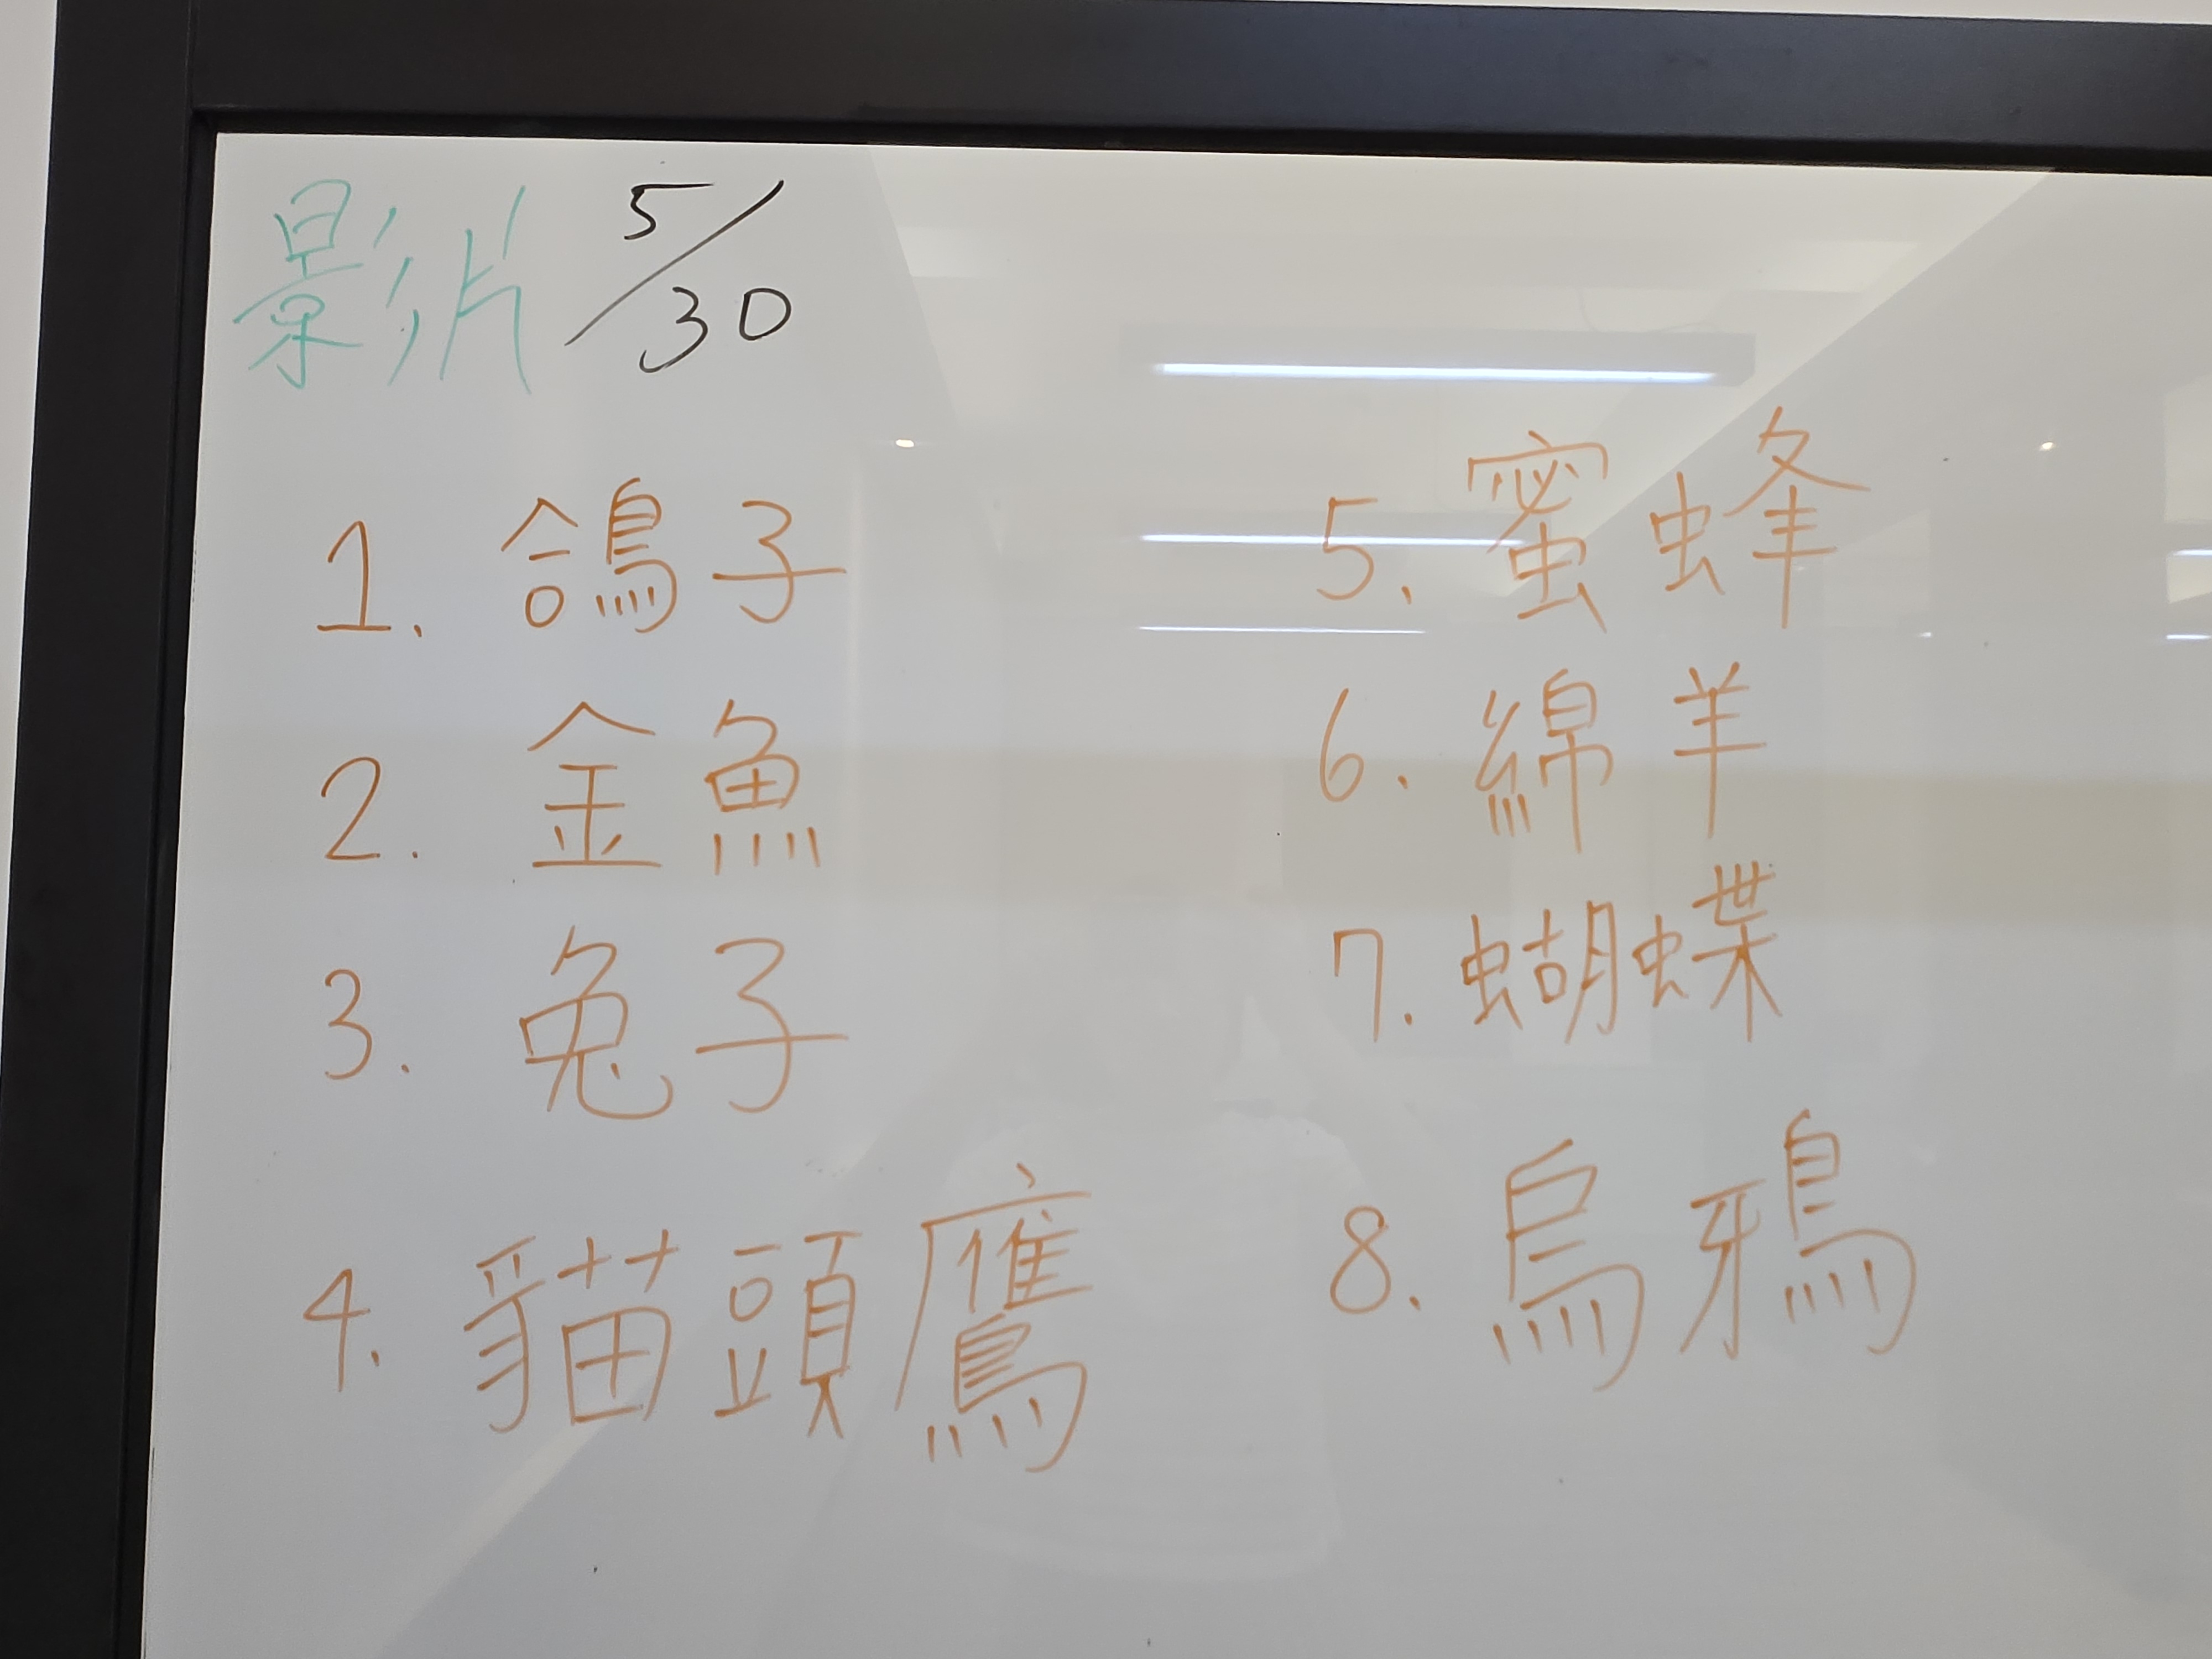 影片 5/30
1. 鴿子
2. 金魚
3. 兔子
4. 貓頭鷹
5. 蜜蜂
6. 綿羊
7. 蝴蝶
8. 烏鴉